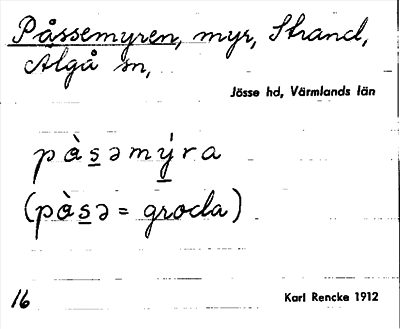 Påssemyren, myr, Strand,
Älgå sn,
Jösse hd, Värmlands län
pàs̲əmý̲ra
(pàs̲ə = groda)
16
Karl Rencke 1912